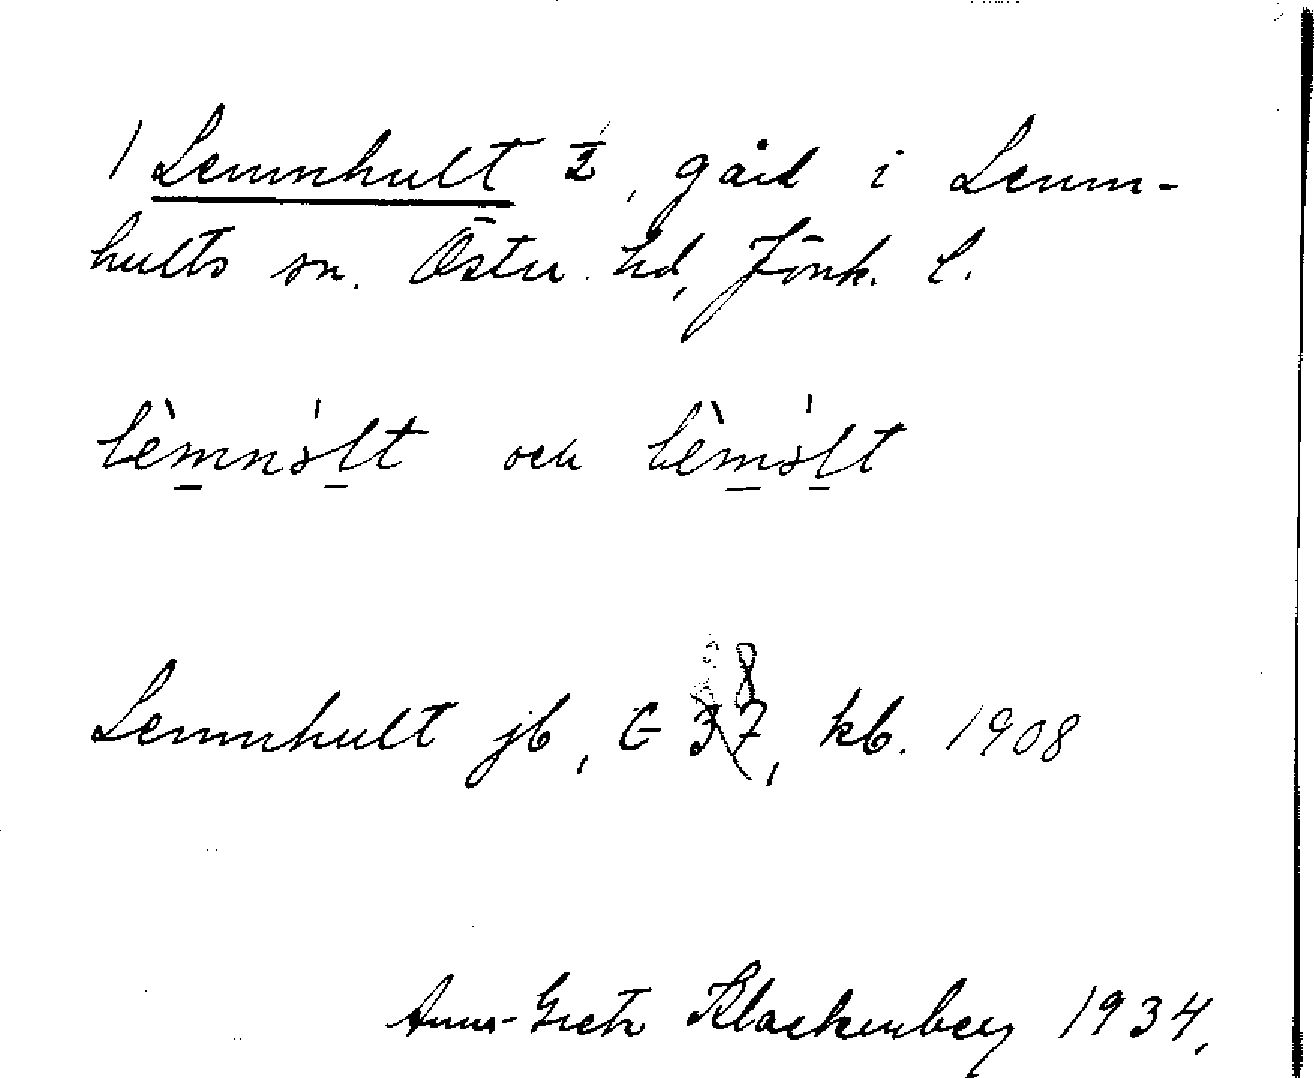 1 Lemnhult ½, gård i Lemn-
hults sn. Östra hd, Jönk. l.
lèmnált och lèmált
Lemnhult jb, G 8, kb. 1908
Anna-Greta Klackenberg 1934,